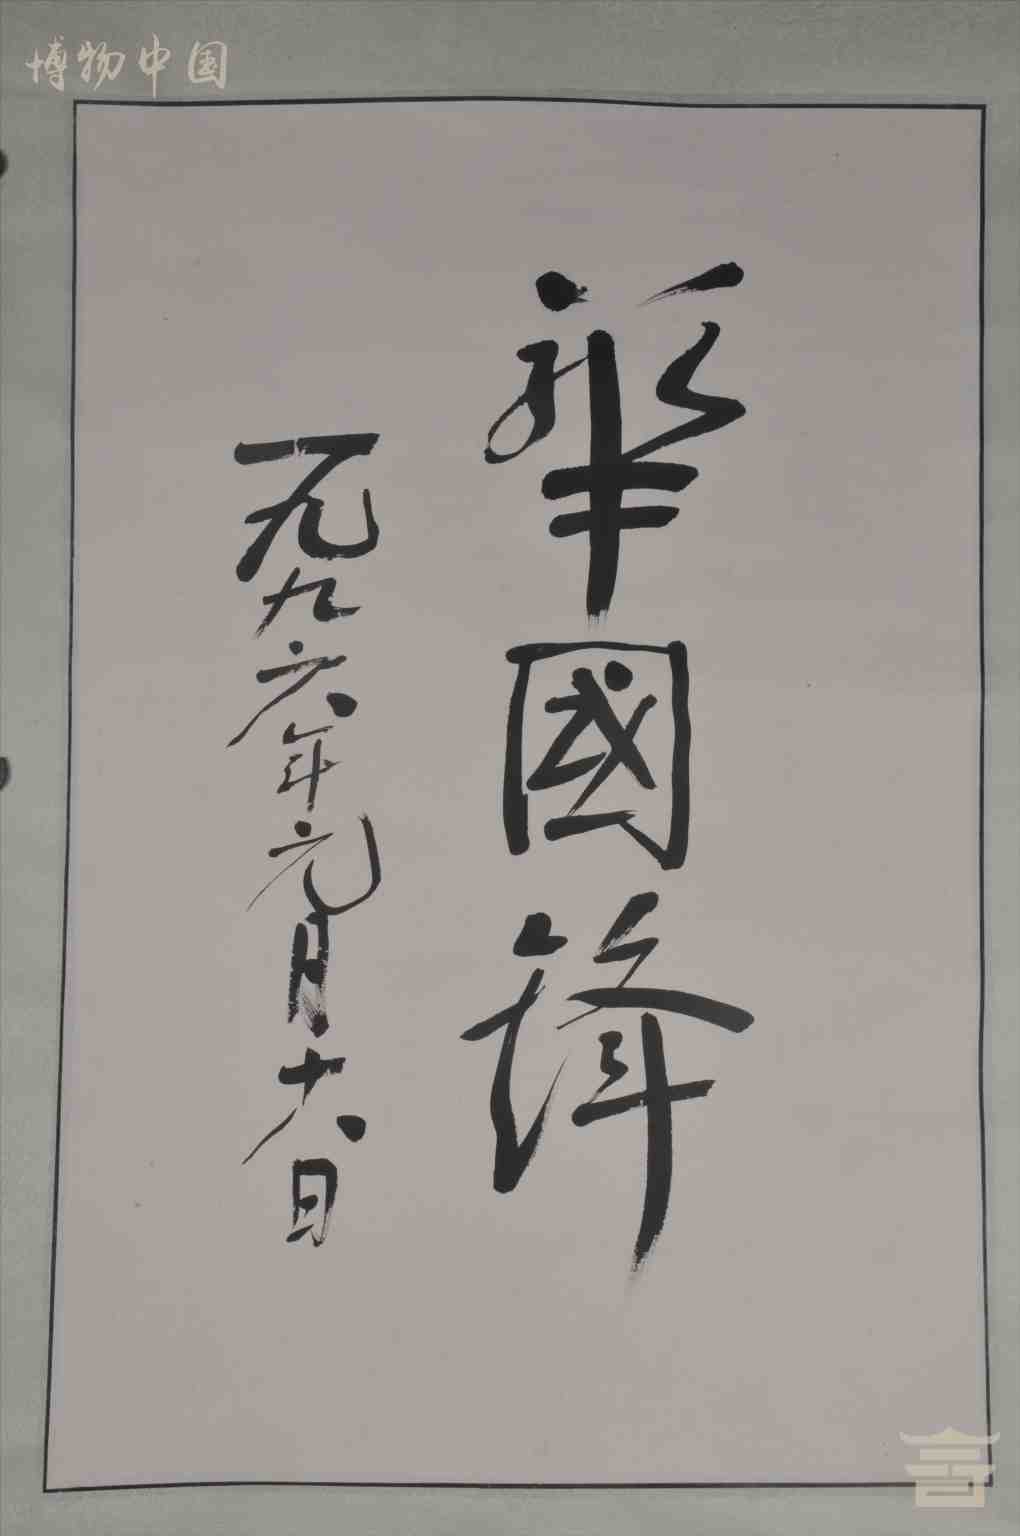 博物中国
华國锋
一九九六年元月十六日